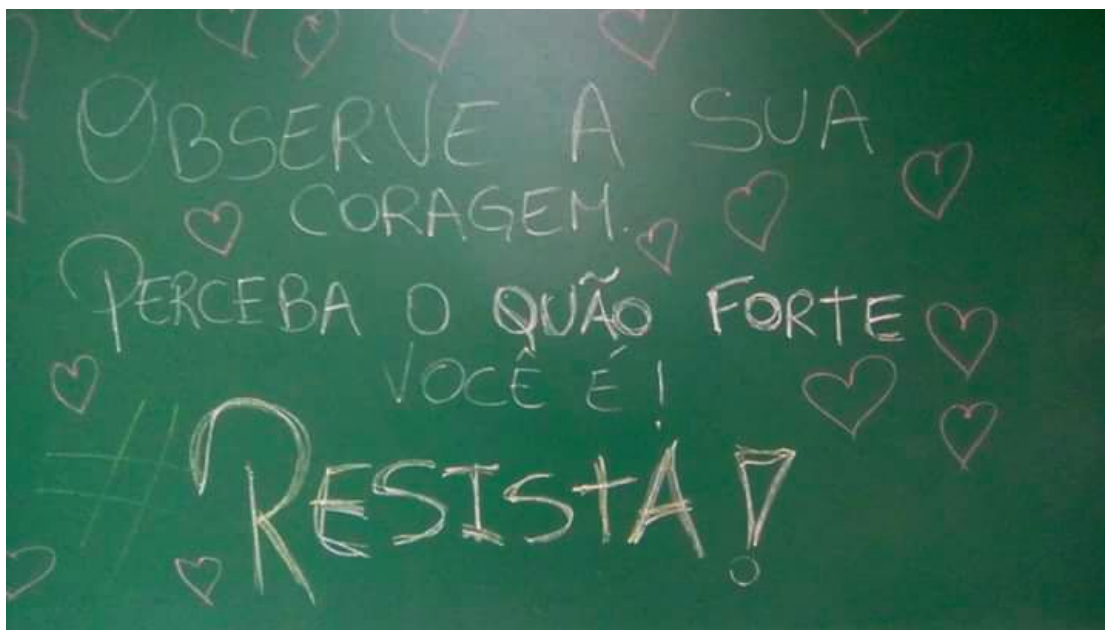 OBSERVE A SUA
CORAGEM.
PERCEBA O QUÃO FORTE
VOCÊ É!
#RESISTA!